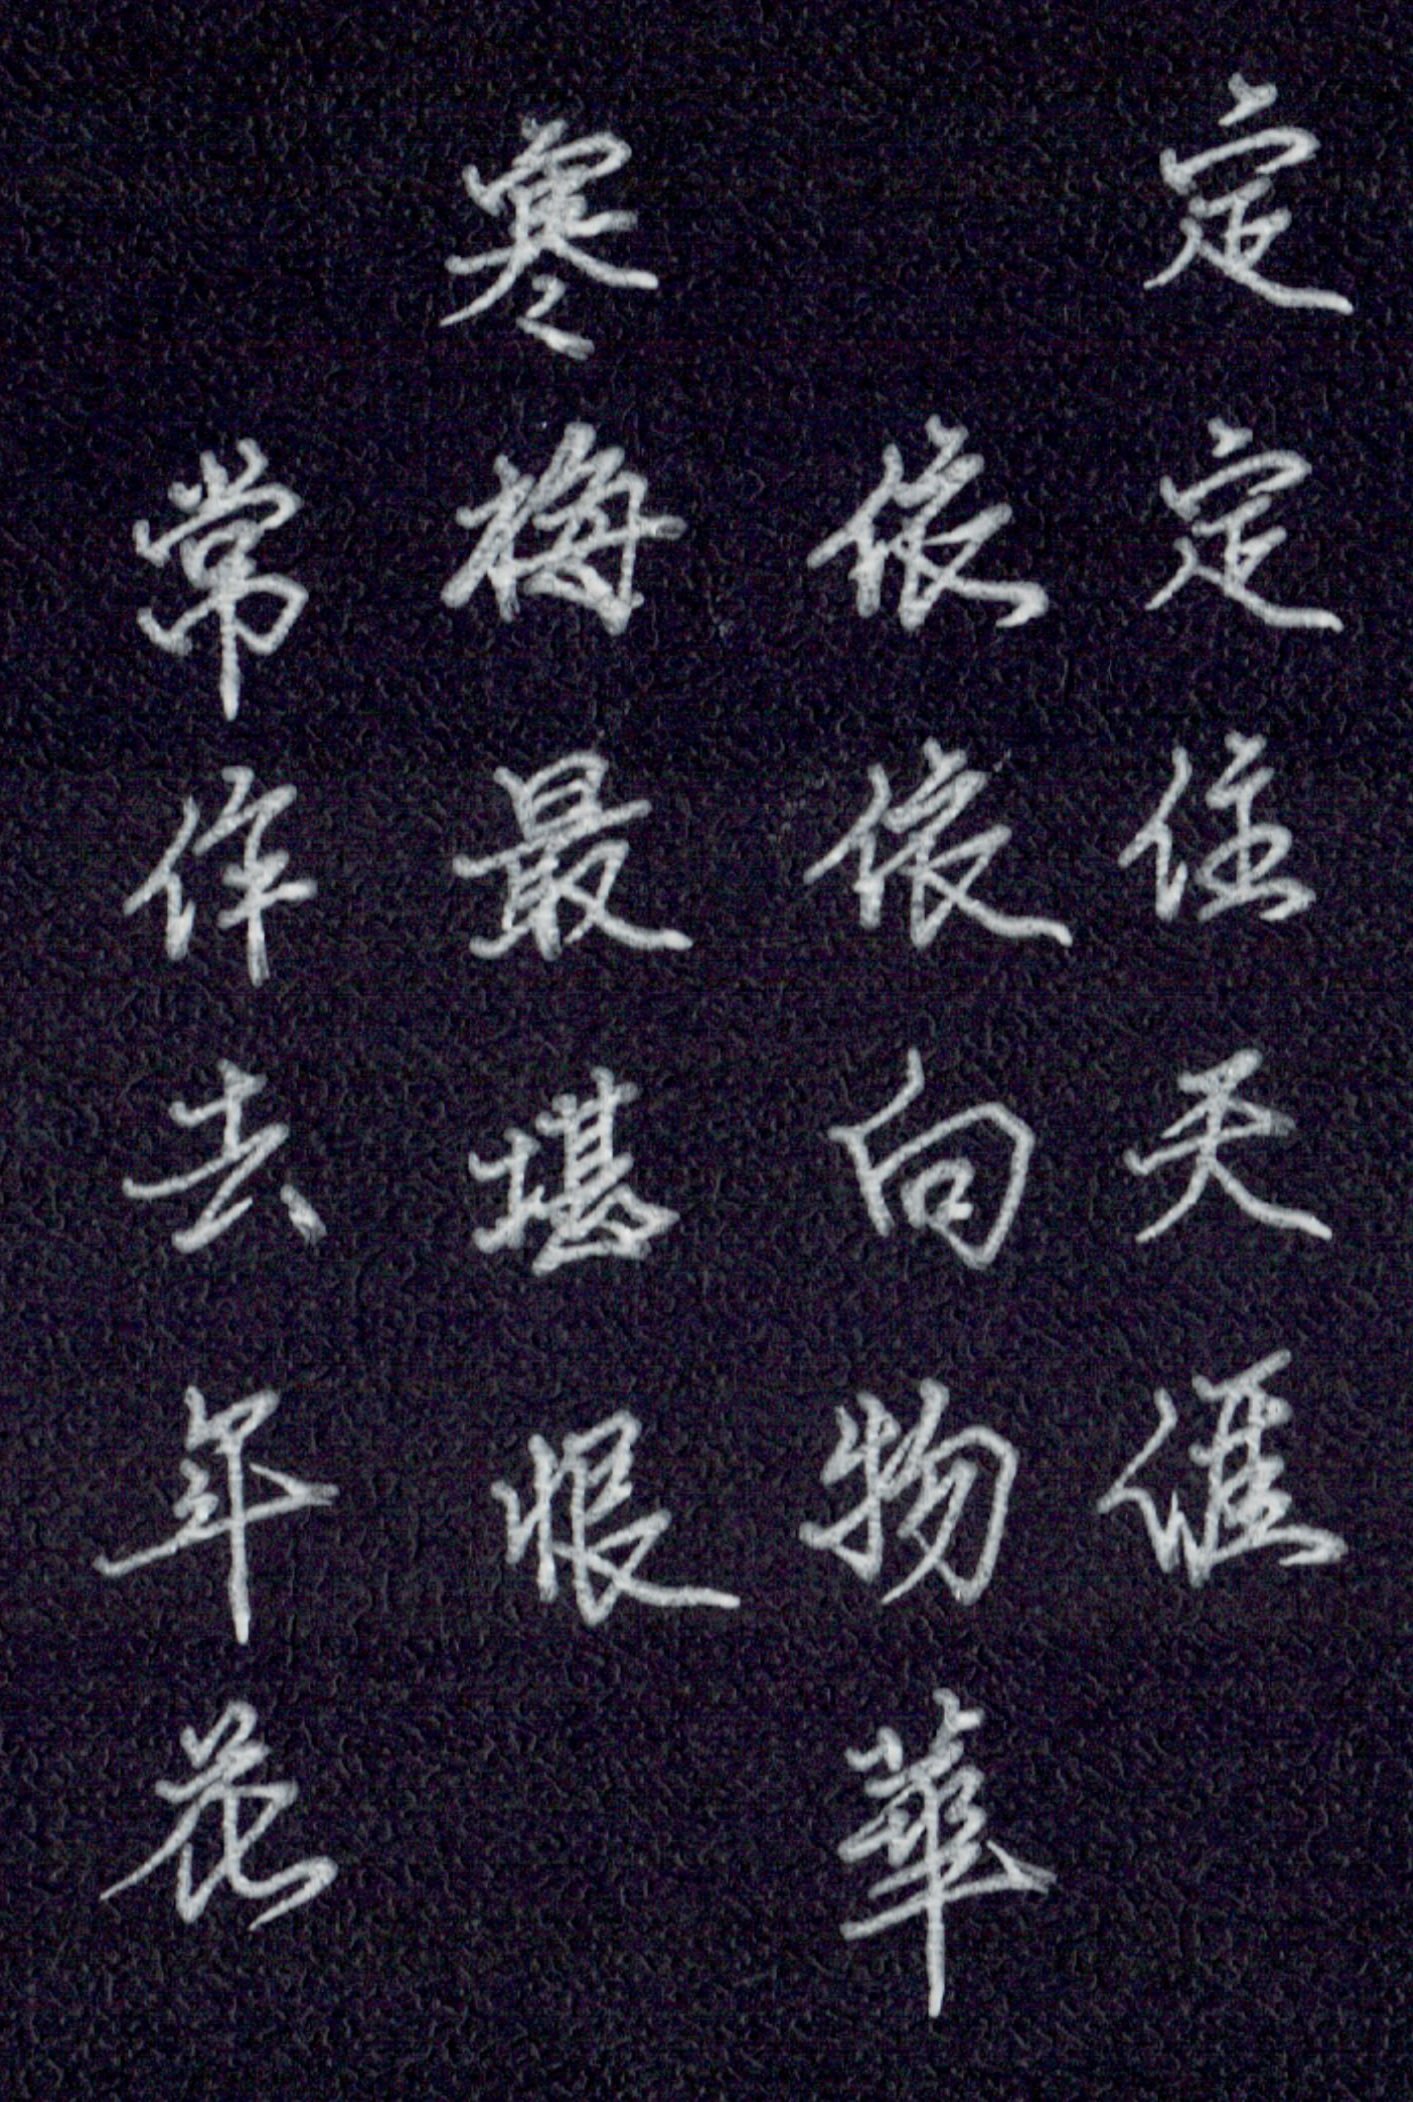 定定住天涯
依依向物華
寒梅最堪恨
常作去年花